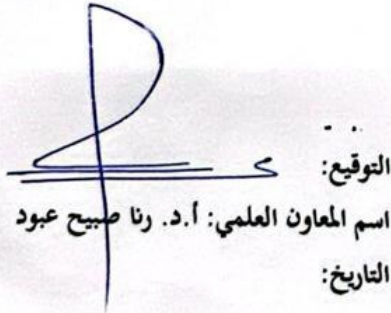 التوقيع:
اسم المعاون العلمي: أ.د. رنا صبيح عبود
التاريخ: